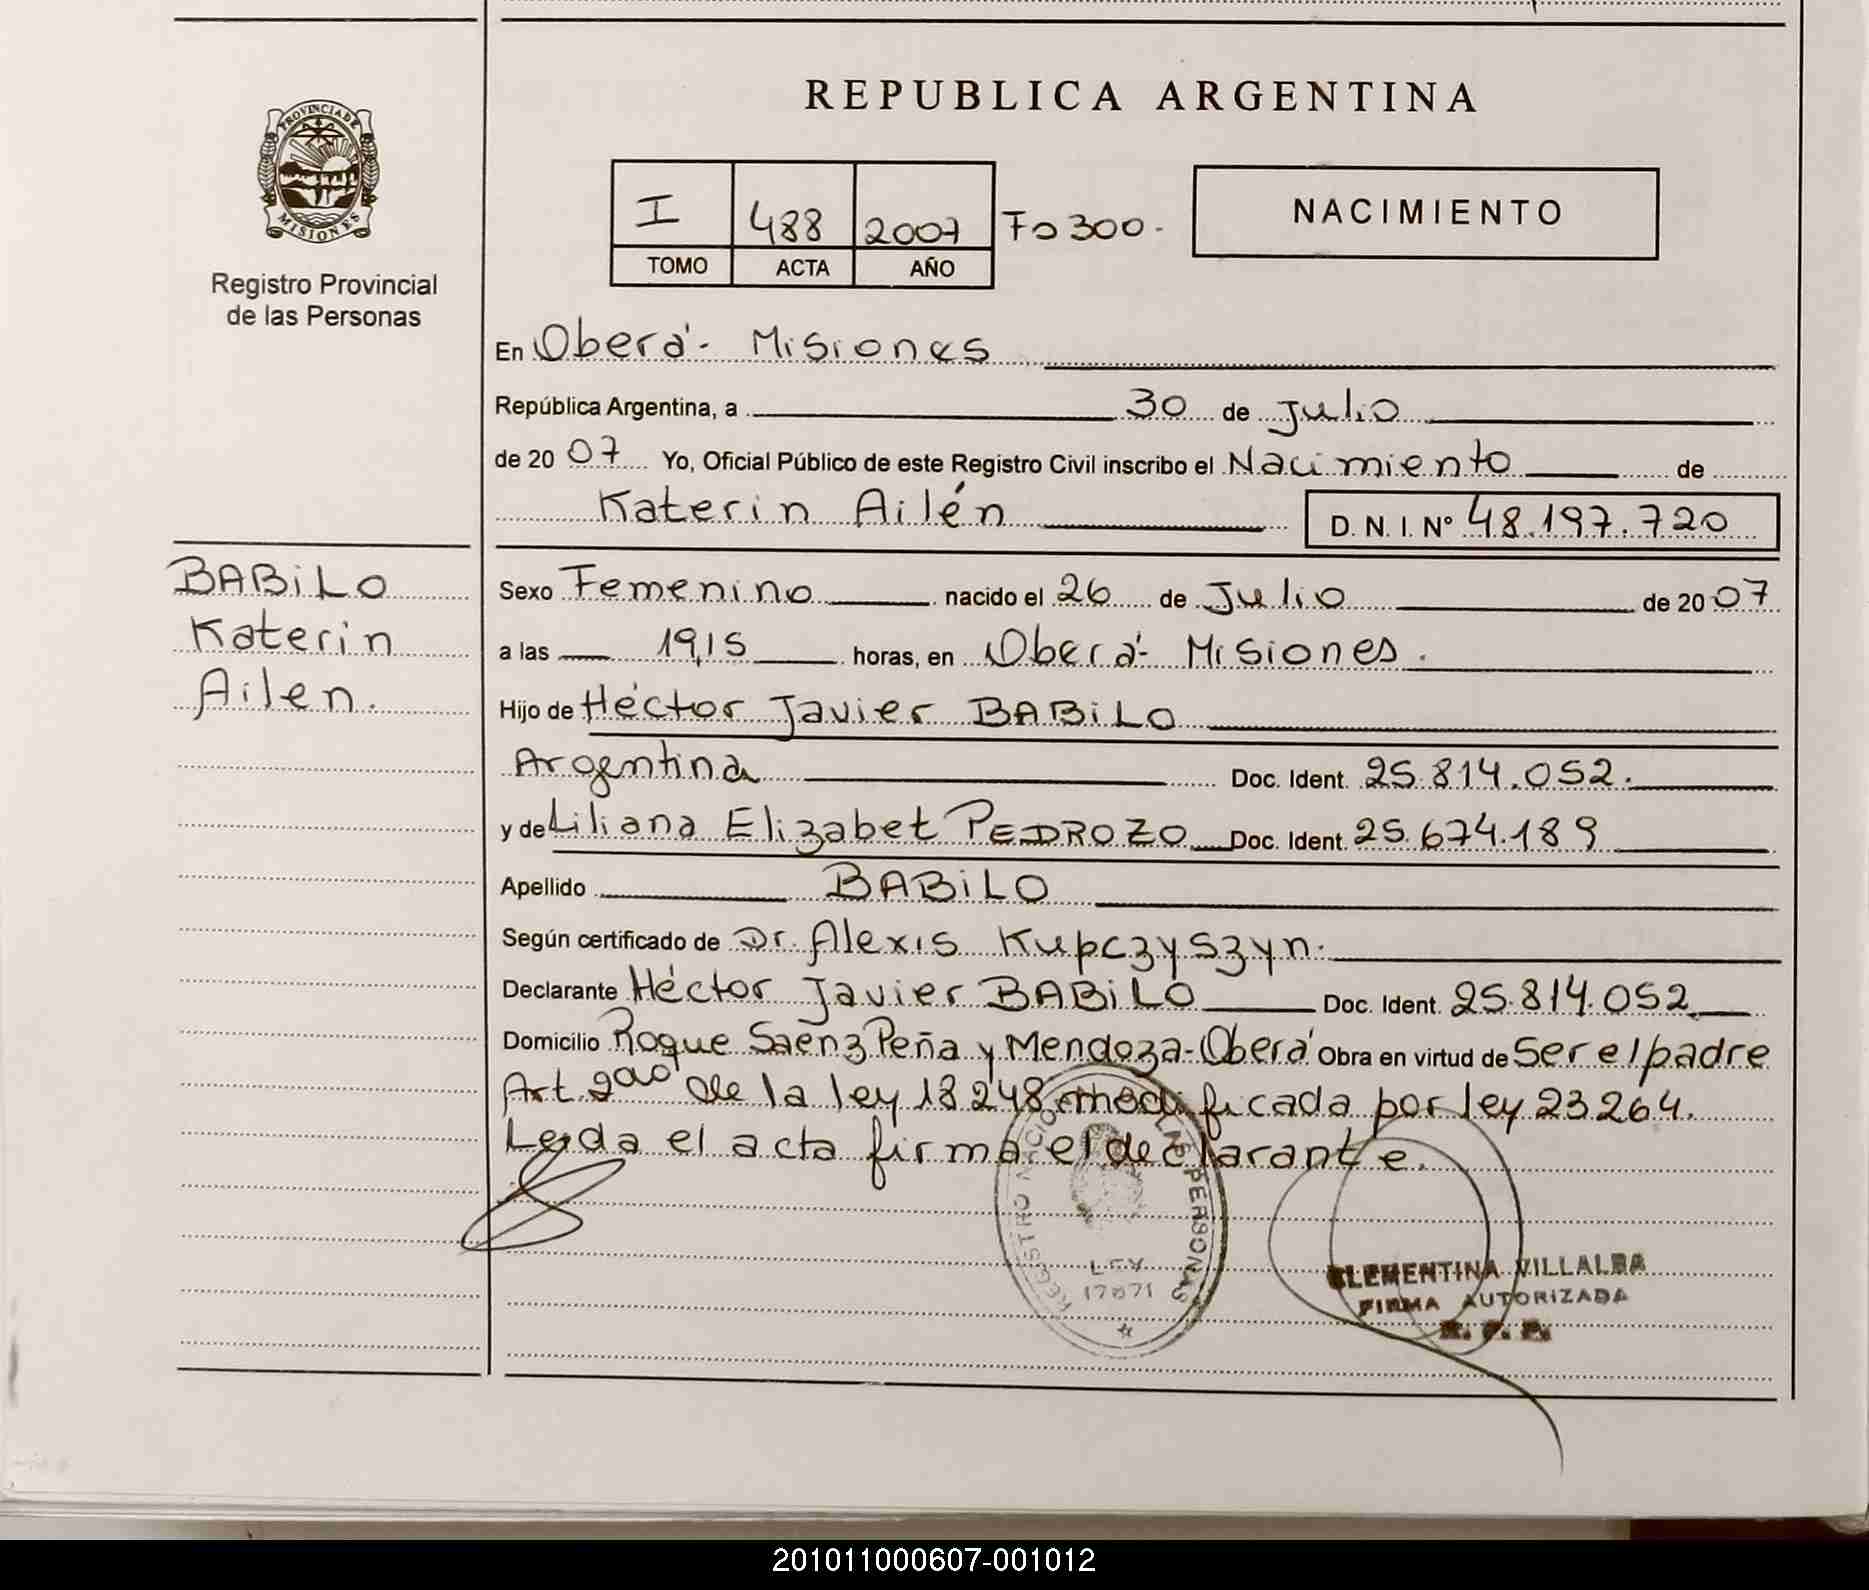 REPUBLICA ARGENTINA
PROVINCIA DE
MISIONES
Registro Provincial
de las Personas
I 488 2007 Fo 300.
TOMO ACTA AÑO
NACIMIENTO
En Oberá - Misiones
República Argentina, a 30 de Julio
de 2007 Yo, Oficial Público de este Registro Civil inscribo el Nacimiento de
Katerin Ailén D. N. I. Nº 48.197.720
BABiLO
Katerin
Ailen.
Sexo Femenino nacido el 26 de Julio de 2007
a las 19,15 horas, en Oberá - Misiones.
Hijo de Héctor Javier BABiLO
Argentina Doc. Ident. 25.814.052.
y de Liliana Elizabet PEDROZO Doc. Ident. 25.674.189
Apellido BABiLO
Según certificado de Dr. Alexis Kupczyszyn.
Declarante Héctor Javier BABiLO Doc. Ident. 25.814.052
Domicilio Roque Saenz Peña y Mendoza - Oberá Obra en virtud de Ser el padre
Art. 2do de la ley 18248 modificada por ley 23264.
Leida el acta firma el declarante.
REGISTRO NACIONAL DE LAS PERSONAS
LEY
17671
CLEMENTINA VILLALBA
FIRMA AUTORIZADA
R. P. P.
201011000607-001012